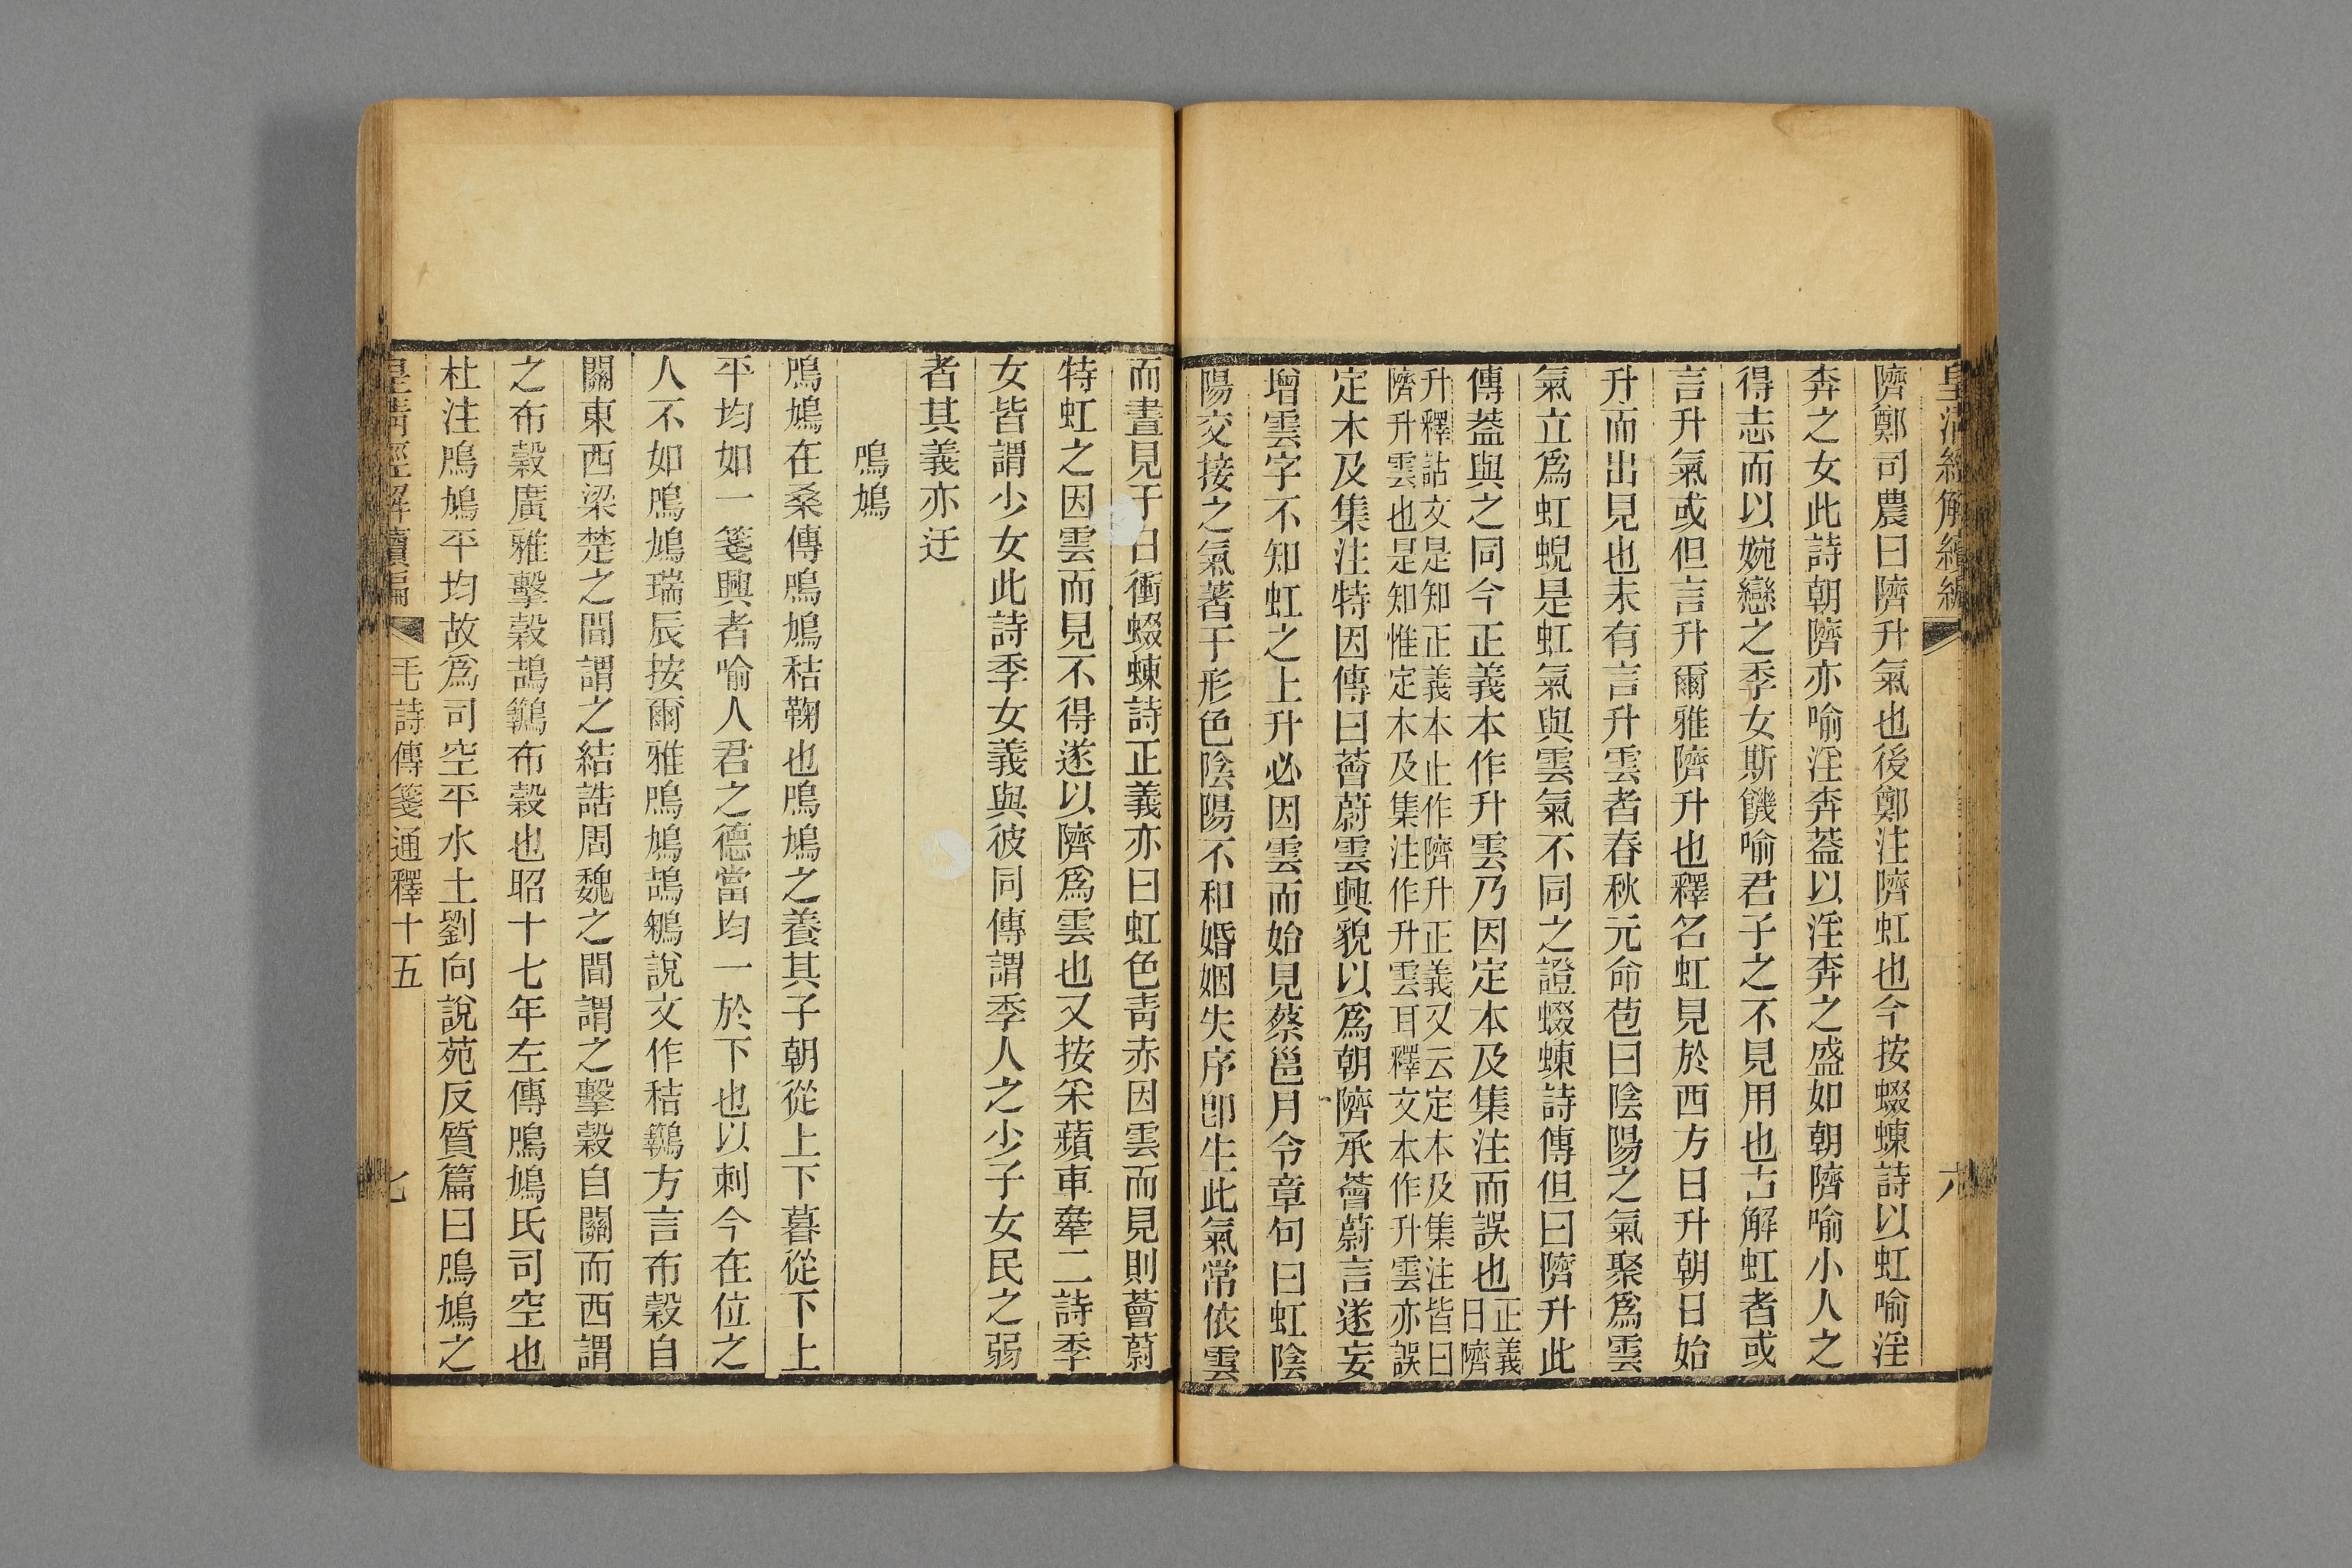 皇清經解續編
隮鄭司農曰隮升氣也後鄭注隮虹也今按蝃蝀詩以虹喻淫
奔之女此詩朝隮亦喻淫奔葢以淫奔之盛如朝隮喻小人之
得志而以婉戀之季女斯饑喻君子之不見用也古解虹者或
言升氣或但言升爾雅隮升也釋名虹見於西方曰升朝日始
升而出見也未有言升雲者春秋元命苞曰陰陽之氣聚爲雲
氣立爲虹蜺是虹氣與雲氣不同之證蝃蝀詩傳但曰隮升此
傳葢與之同今正義本作升雲乃因定本及集注而誤也正義
曰隮
升釋詁文是知正義本止作隮升正義又云定本及集注皆曰
隮升雲也是知惟定本及集注作升雲耳釋文本作升雲亦誤
定本及集注特因傳曰薈蔚雲興貌以爲朝隮承薈蔚言遂妄
增雲字不知虹之上升必因雲而始見蔡邕月令章句曰虹陰
陽交接之氣著于形色陰陽不和婚姻失序卽生此氣常依雲
而晝見于日衝蝃蝀詩正義亦曰虹色青赤因雲而見則薈蔚
特虹之因雲而見不得遂以隮爲雲也又按采蘋車舝二詩季
女皆謂少女此詩季女義與彼同傳謂季人之少子女民之弱
者其義亦迂
鳲鳩
鳲鳩在桑傳鳲鳩秸鞠也鳲鳩之養其子朝從上下暮從下上
平均如一箋興者喻人君之德當均一於下也以刺今在位之
人不如鳲鳩瑞辰按爾雅鳲鳩鴶鵴說文作秸鵴方言布穀自
關東西梁楚之間謂之結誥周魏之間謂之擊穀自關而西謂
之布穀廣雅擊穀鴶鵴布穀也昭十七年左傳鳲鳩氏司空也
杜注鳲鳩平均故爲司空平水土劉向說苑反質篇曰鳲鳩之
皇清經解續編
毛詩傳箋通釋十五
七